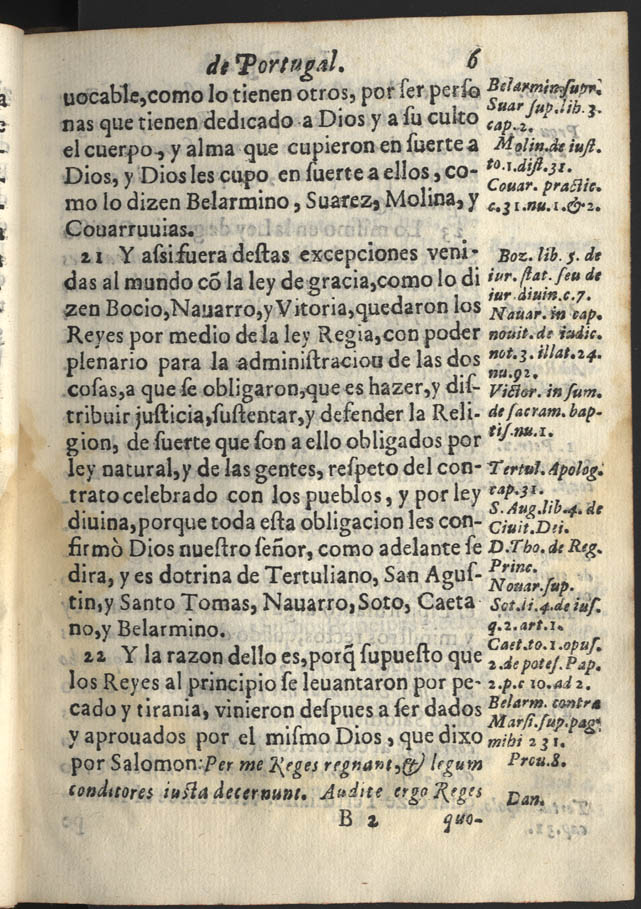 de Portugal. 6
uocable,como lo tienen otros, por ſer perſo
nas que tienen dedicado a Dios y a ſu culto
el cuerpo, y alma que cupieron en ſuerte a
Dios, y Dios les cupo en ſuerte a ellos, co-
mo lo dizen Belarmino, Suarez, Molina, y
Couarruuias.
21 Y aſsi fuera deſtas excepciones veni-
das al mundo cõ la ley de gracia,como lo di
zen Bocio,Nauarro,y Vitoria,quedaron los
Reyes por medio de la ley Regia,con poder
plenario para la adminiſtracion de las dos
coſas,a que ſe obligaron,que es hazer,y diſ-
tribuir juſticia,ſuſtentar,y defender la Reli-
gion, de ſuerte que ſon a ello obligados por
ley natural,y de las gentes, reſpeto del con-
trato celebrado con los pueblos, y por ley
diuina,porque toda eſta obligacion les con-
firmò Dios nueſtro ſeñor, como adelante ſe
dira, y es dotrina de Tertuliano, San Aguſ-
tin,y Santo Tomas, Nauarro,Soto, Caeta
no,y Belarmino.
22 Y la razon dello es,porq̃ ſupueſto que
los Reyes al principio ſe leuantaron por pe-
cado y tirania, vinieron deſpues a ſer dados
y aprouados por el miſmo Dios, que dixo
por Salomon:Per me Reges regnant,& legum
conditores iuſta decernunt. Audite ergo Reges
B 2 quo-
Belarmin.ſupr.
Suar ſup.lib.3.
cap.2.
Molin.de iuſt.
to.1.diſt.31.
Couar. practic.
c.31.nu.1.&2.
Boz. lib. 5. de
iur. ſtat. ſeu de
iur diuin.c.7.
Nauar. in cap.
nouit. de iudic.
not.3. illat.24.
nu.92.
Victor. in ſum.
de ſacram. bap-
tiſ.nu.1.
Tertul. Apolog.
cap.31.
S. Aug.lib.4. de
Ciuit.Dei.
D.Tho. de Reg.
Princ.
Nouar.ſup.
Sot.li.4.de iuſ.
q.2.art.1.
Caet.to.1.opuſ.
2.de poteſ. Pap.
2.p.c 10.ad 2.
Belarm. contra
Marſi.ſup.pag.
mihi 231.
Prou.8.
Dan.